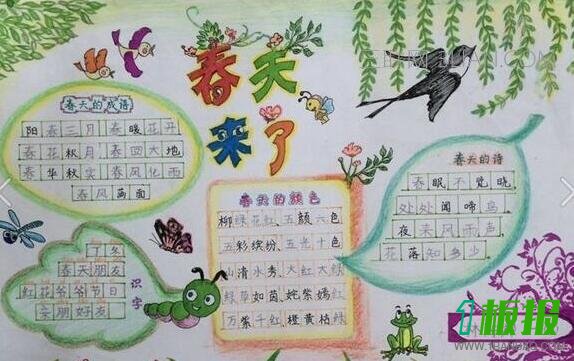 春天
来了
春天的成语
阳春三月 春暖花开
春花秋月 春回大地
春华秋实 春风化雨
春风满面
春天的诗
春眠不觉晓,
处处闻啼鸟。
夜来风雨声,
花落知多少。
春天的颜色
柳绿花红、五颜六色
五彩缤纷、五光十色
山清水秀、大红大绿
绿草如茵、姹紫嫣红
万紫千红、橙黄枯绿
识字
丁冬
春天朋友
红花爷爷节日
亲朋好友
1板报